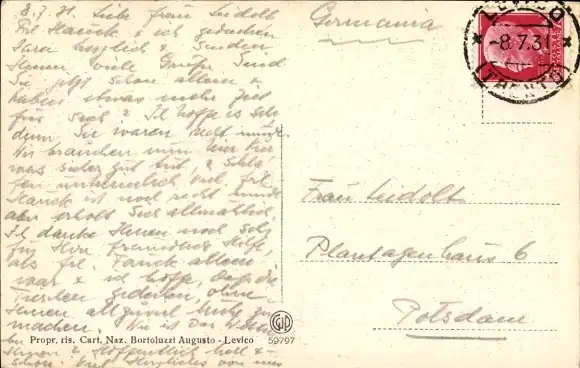 8.7.31. Liebe Frau Luidolt
Frl Hauck & ich gedenken
Ihrer herzlich & senden
Ihnen viele Grüsse. Sind
Sie jetzt schon allein &
haben etwas mehr Zeit
für Sich? Ich hoffe es sehr
denn Sie waren recht müde.
Wir brauchen nun hier
was sicher gut tut, & schla-
fen unheimlich viel. Frl.
Hauck ist noch recht müde
aber erholt Sich allmählich.
Ich danke Ihnen noch sehr
für Ihre freundliche Hilfe,
als Frl. Hauck allein
war & ich hoffe, dass die
gedeihen, ohne
Ihnen allzuviel Mühe zu
machen. Wie ist das Wetter
Ihnen? Hoffentlich hell &
schön. Viel Herzliches von uns
Propr. ris. Cart. Naz. Bortoluzzi Augusto - Levico
59797
Germania
LEVICO
-8.7.31
(TRENTO)
Frau Luidolt
Plantagenhaus 6
Potsdam